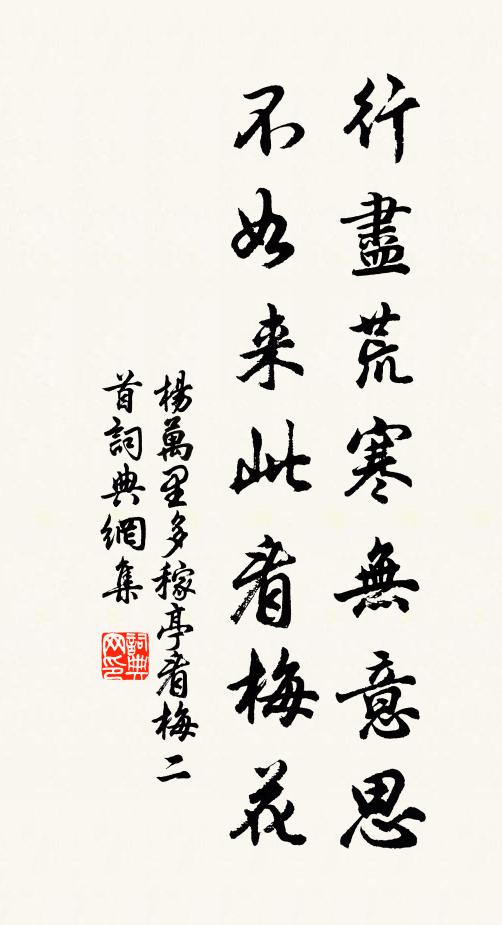 行盡荒寒無意思
不如来此看梅花
楊萬里多稼亭看梅二
首詞典網集
詞典
网印